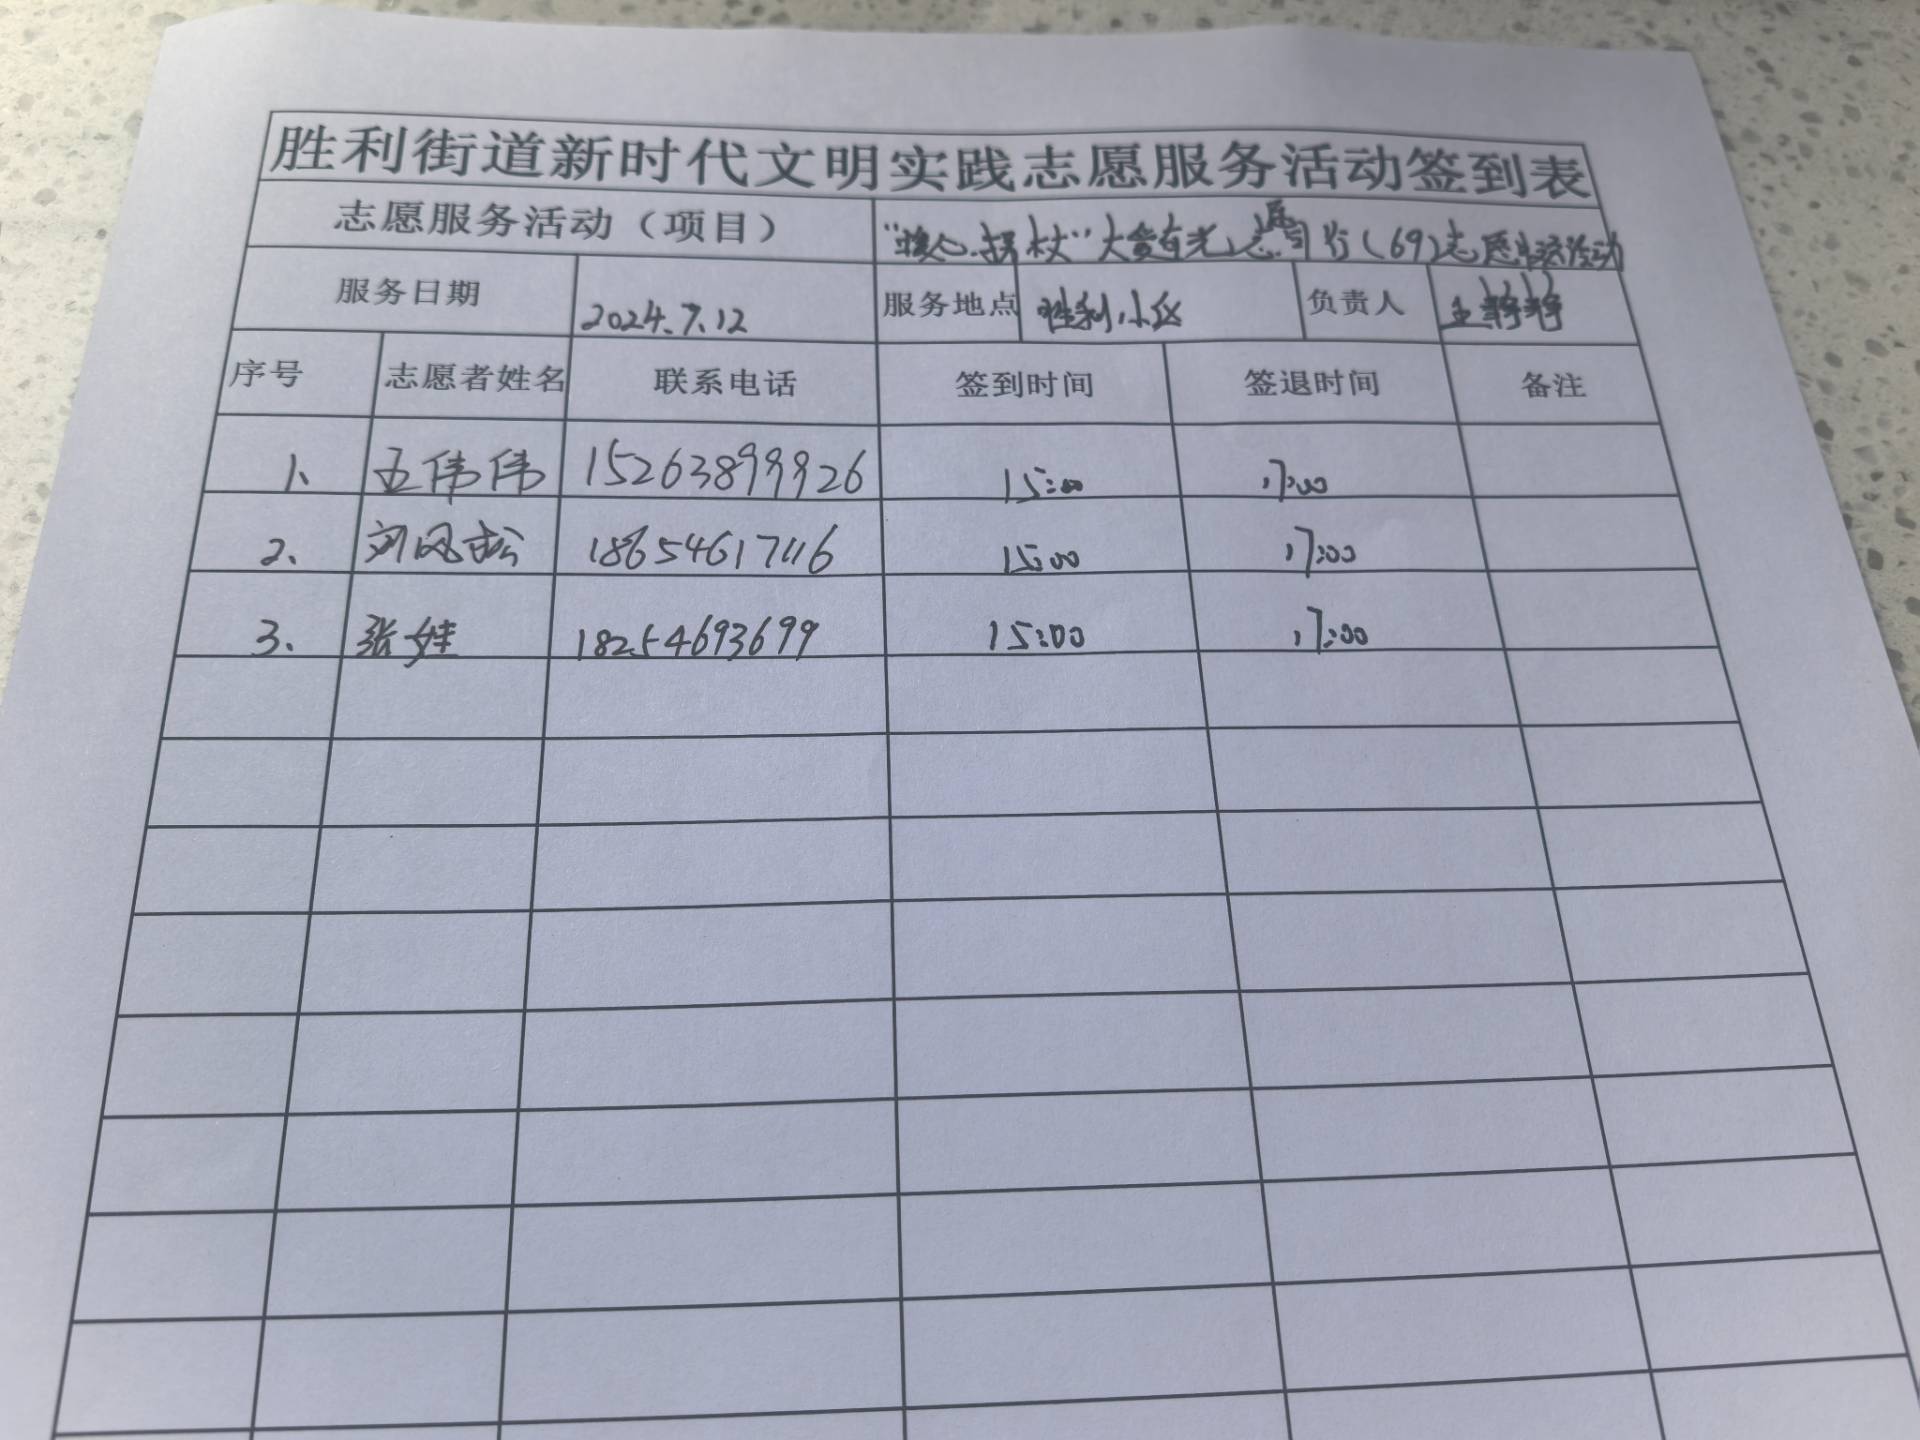 胜利街道新时代文明实践志愿服务活动签到表
志愿服务活动（项目） 拐杖"大 有光 志愿 行(69)志愿 活动
服务日期 2024.7.12 服务地点 胜利小区 负责人 王静静
序号 志愿者姓名 联系电话 签到时间 签退时间 备注
1、 王伟伟 15263899926 15:00 17:00
2、 刘风松 18654617116 15:00 17:00
3、 张娃 18254693699 15:00 17:00